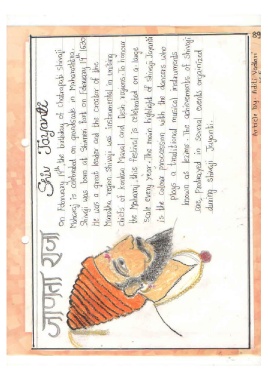 जाणता राजा
Shiv Jayanti
On February 19th the birthday of Chatrapati Shivaji
Maharaj is celebrated on grandscale in Maharashtra.
Shivaji was born at Shivneri fort. February 19, 1630
He was a great leader and the creator of the
Maratha region. Shivaji was instrumental in uniting
chiefs of Konkan Maval and Desh regions. To honour
the Maharaj this festival is celebrated on a large
Scale every year. The main highlight of Shivaji Jayanti
is the colour procession with the dancers who
plays a traditional musical instruments
known as lezims. The achievements of Shivaji
are Portrayed in several events organized
during Shivaji Jayanti.
Article by: Aditi